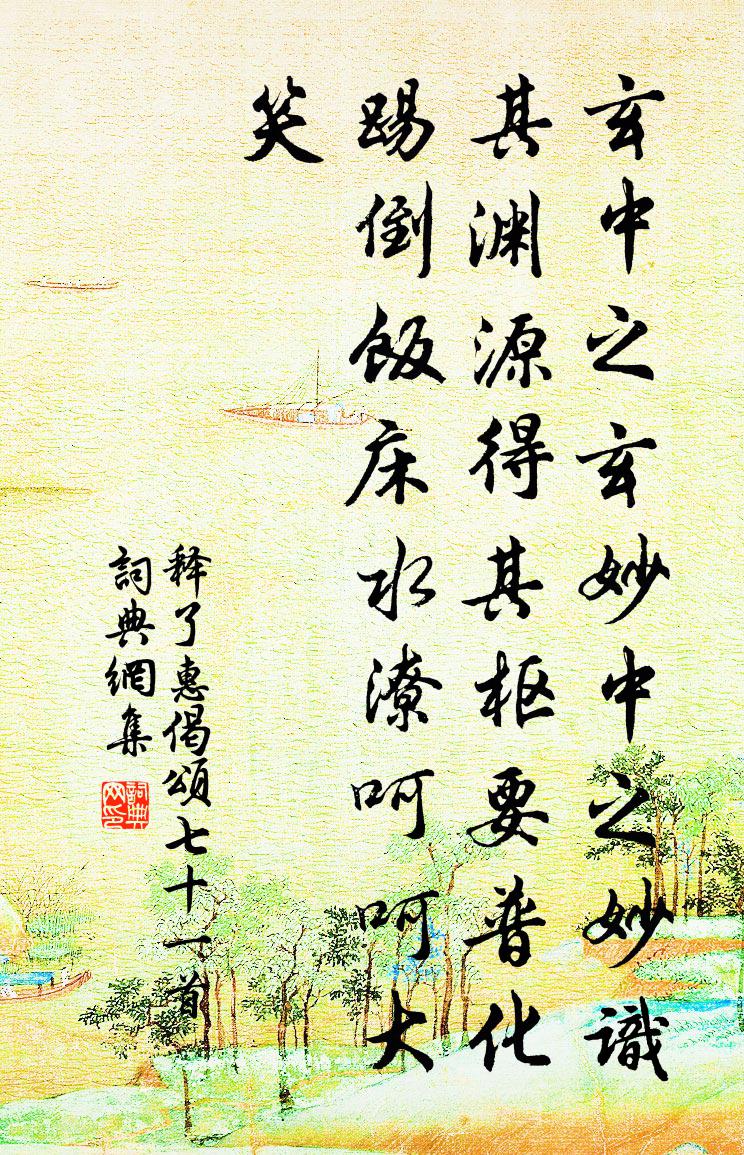 玄中之玄妙中之妙識
其渊源得其枢要普化
踢倒飯床水潦呵呵大
笑
释了惠偈頌七十一首
詞典網集
詞典
网印